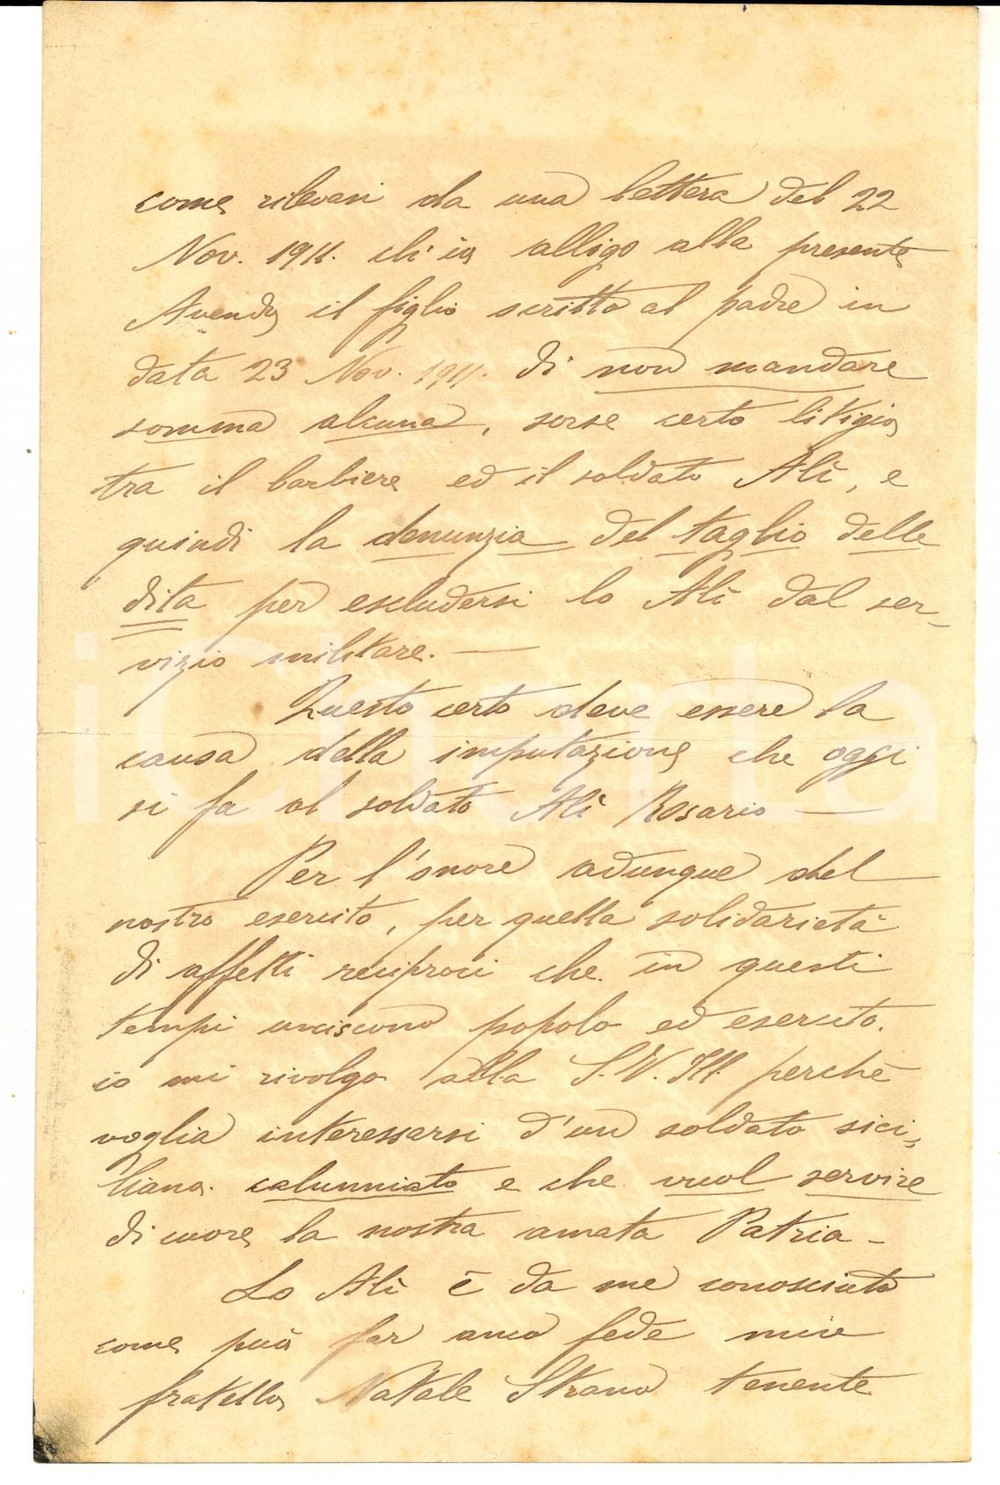 come rilevasi da una lettera del 22
Nov. 1911. ch'io alligo alla presente
Avendo il figlio scritto al padre in
data 23 Nov. 1911. di non mandare
somma alcuna, sorse certo litigio
tra il barbiere ed il soldato Alì, e
quindi la denunzia del taglio delle
dita per escludersi lo Alì dal ser-
vizio militare. —
Questo certo deve essere la
causa della imputazione che oggi
si fa al soldato Alì Rosario —
Per l'onore adunque del
nostro esercito, per quella solidarietà
di affetti reciproci che in questi
tempi uniscono popolo ed esercito.
io mi rivolgo alla S.V. Ill. perchè
voglia interessarsi d'un soldato sici-
liano. calunniato e che vuol servire
di cuore la nostra amata Patria -
Lo Alì è da me conosciuto
come può far anco fede mio
fratello Natale Strano tenente
iCharta